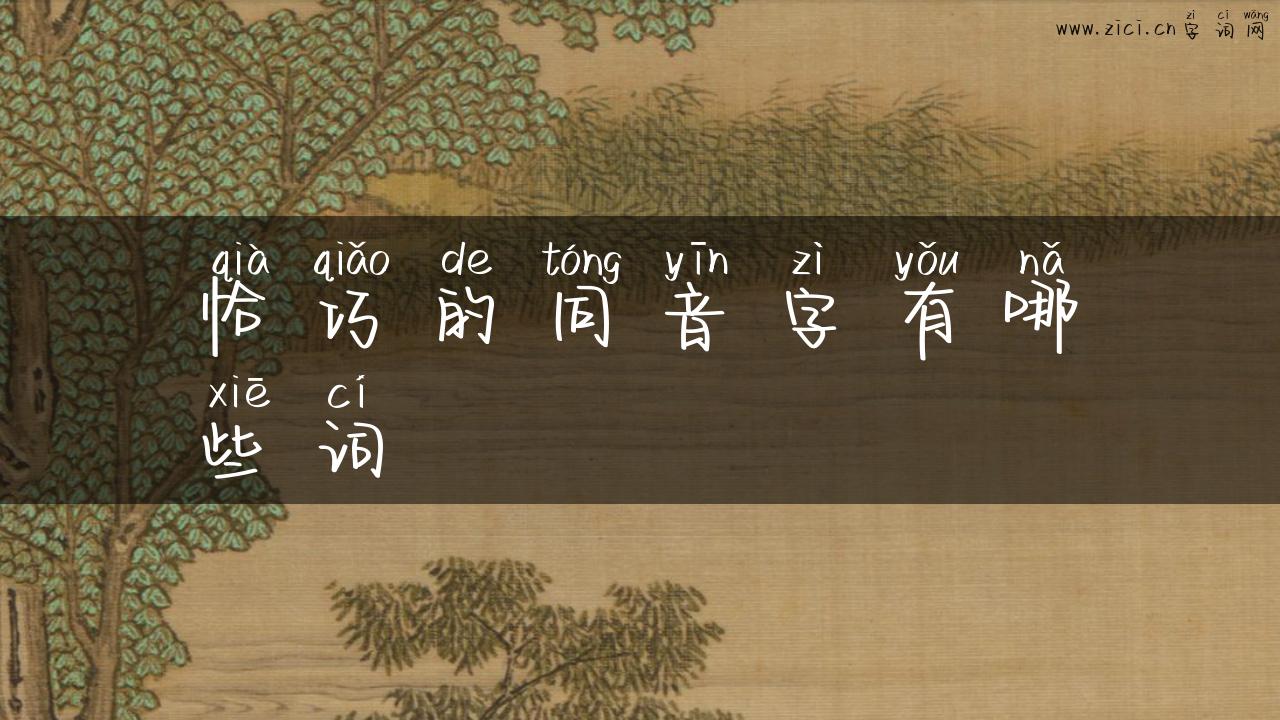 zì cí wǎng
www.zici.cn 字词网
qià qiǎo de tóng yīn zì yǒu nǎ
恰巧的同音字有哪
xiē cí
些词